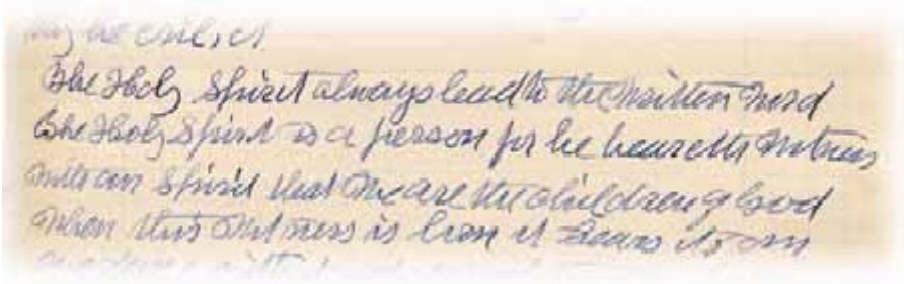 The Holy Spirit always lead to the written word
The Holy Spirit is a person for he beareth witness
with our Spirit that we are the children of God
When this witness is born it bears its own